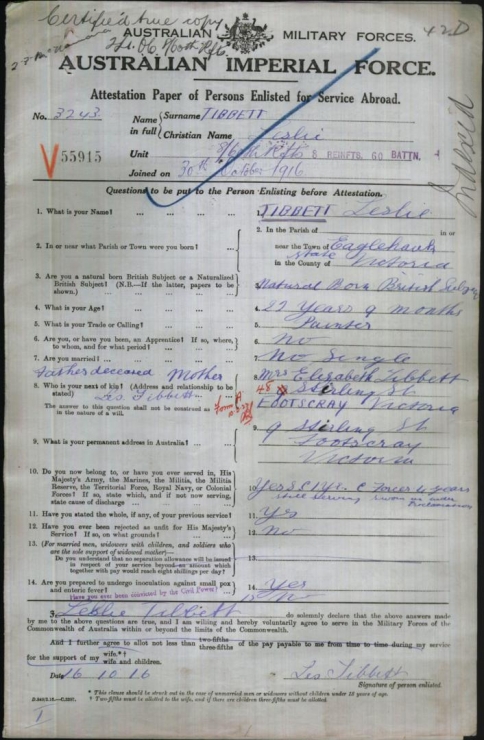 Certified true copy
AUSTRALIAN MILITARY FORCES.
42D
AUSTRALIAN IMPERIAL FORCE.
Attestation Paper of Persons Enlisted for Service Abroad.
No. 3243
Name in full
Surname TIBBETT
Christian Name Leslie
V55915
Unit 8 REINFTS. 60 BATTN.
Joined on 30th October 1916
Indexed
Questions to be put to the Person Enlisting before Attestation.
1. What is your Name?
1. TIBBETT Leslie
2. In or near what Parish or Town were you born?
2. In the Parish of in or
near the Town of Eaglehawk
State
in the County of Victoria
3. Are you a natural born British Subject or a Naturalized
British Subject? (N.B.—If the latter, papers to be
shown.)
3. Natural Born British Subject
4. What is your Age?
4. 22 Years 9 months
5. What is your Trade or Calling?
5. Painter
6. Are you, or have you been, an Apprentice? If so, where,
to whom, and for what period?
6. No
7. Are you married?
7. No Single
Father deceased Mother
8. Who is your next of kin? (Address and relationship to be
stated)
Les Tibbett
The answer to this question shall not be construed as
in the nature of a will.
Form A
8. Mrs Elizabeth Tibbett
48
9 Stirling St
FOOTSCRAY Victoria
9. What is your permanent address in Australia?
9 Stirling St
Footscray
Victoria
10. Do you now belong to, or have you ever served in, His
Majesty's Army, the Marines, the Militia, the Militia
Reserve, the Territorial Force, Royal Navy, or Colonial
Forces? If so, state which, and if not now serving,
state cause of discharge
10. Yes 4 years
still serving
11. Have you stated the whole, if any, of your previous service?
11. Yes
12. Have you ever been rejected as unfit for His Majesty's
Service? If so, on what grounds?
12. No
13. (For married men, widowers with children, and soldiers who
are the sole support of widowed mother)—
Do you understand that no separation allowance will be issued
in respect of your service beyond an amount which
together with pay would reach eight shillings per day?
13.
14. Are you prepared to undergo inoculation against small pox
and enteric fever?
14. Yes
Have you ever been convicted by the Civil Power?
15 No
I, Leslie Tibbett do solemnly declare that the above answers made
by me to the above questions are true, and I am willing and hereby voluntarily agree to serve in the Military Forces of the
Commonwealth of Australia within or beyond the limits of the Commonwealth.
And I further agree to allot not less than two-fifths
three-fifths of the pay payable to me from time to time during my service
for the support of my wife.*†
wife and children.
Date 16 10 16
Les Tibbett
Signature of person enlisted.
* This clause should be struck out in the case of unmarried men or widowers without children under 18 years of age.
† Two fifths must be allotted to the wife, and if there are children three-fifths must be allotted.
1